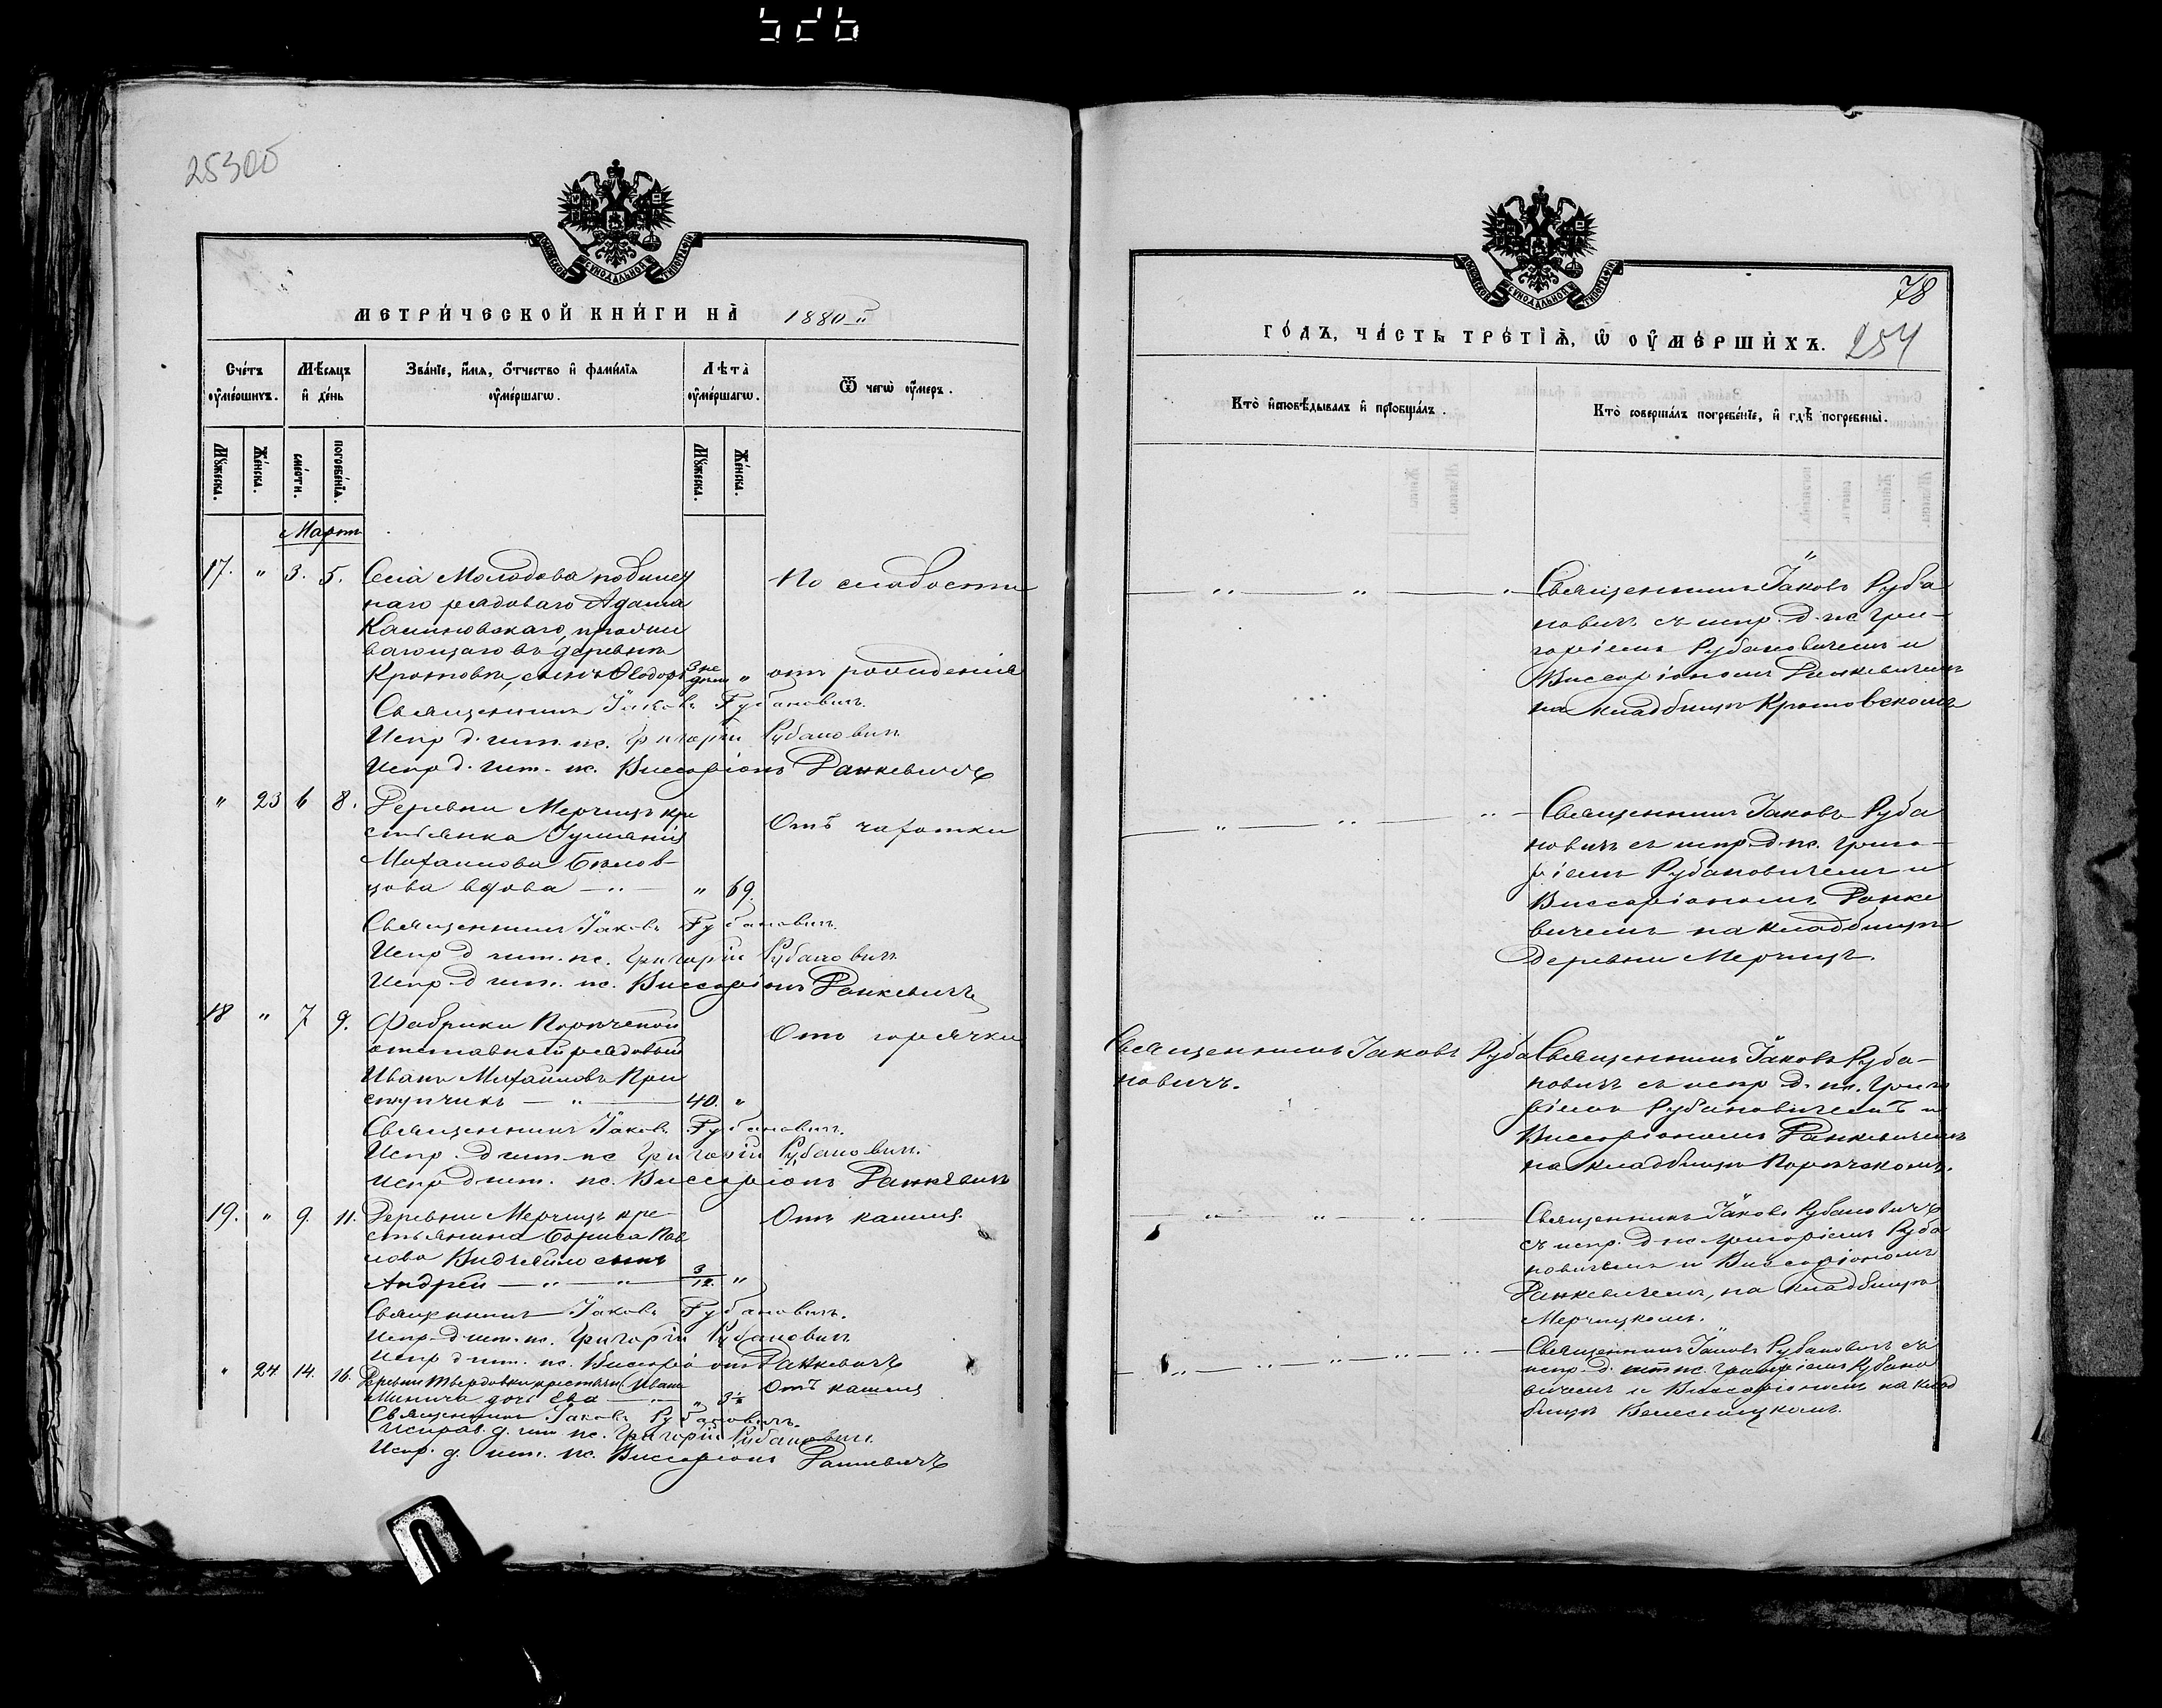 526
25300
МЕТРИ́ЧЕСКОЙ КНИ́ГИ НА̀ 1880 й
Сче́тъ ᲂу҆ме́ршихъ.
Мѣ́сяцъ и҆ де́нь
Зва́нїе, и҆́мя, ѻ҆́тчество и҆ фами́лїя ᲂу҆ме́ршагѡ.
Лѣ́та̀ ᲂу҆ме́ршагѡ.
Ѿ чегѡ̀ ᲂу҆́меръ.
Му́жеска.
Же́нска.
сме́рти.
погребе́нїя.
Му́жеска.
Же́нска.
Мартъ
17. " 3. 5. Села Молодова
наго рядоваго Адама
Калиновскаго, прожи
вающаго въ деревнѣ
Кротовѣ, сынъ Ѳеодоръ 3 не "
По слабости
отъ рожденія
Священникъ Іаковъ Рубановичъ.
Испр. д. пс. Григорій Рубановичъ
Испр. д. пс. Виссаріонъ Ранкевичъ
" 23 6 8. Деревни Мерчицъ кре
стьянка Іуліанія
Михаилова
цова вдова — " — " 69.
Отъ чахотки
Священникъ Іаковъ Рубановичъ.
Испр. д. пс. Григорій Рубановичъ
Испр. д. пс. Виссаріонъ Ранкевичъ
18 " 7 9. Фабрики Порѣчской
отставный рядовый
Иванъ Михайловъ При
ступчикъ — " — 40. "
Отъ горячки
Священникъ Іаковъ Рубановичъ.
Испр. д. пс. Григорій Рубановичъ.
Испр. д. пс. Виссаріонъ Ранкевичъ
19. " 9. 11. Деревни Мерчицъ кре
стьянина Бориса Пав
лова сынъ
Андрей — " — " — 3/12. "
Отъ кашля.
Священникъ Іаковъ Рубановичъ.
Испр. д. пс. Григорій Рубановичъ
Испр. д. пс. Виссаріонъ Ранкевичъ
" 24 14. 16. Деревни Твердовки крестьян. Ивана
Минича дочь Ева — " — " 3½
Отъ кашля
Священникъ Іаковъ Рубановичъ.
Исправ. д. пс. Григорій Рубановичъ.
Испр. д. пс. Виссаріонъ Ранкевичъ
78
ГО́ДЪ, ЧА́СТЬ ТРЕ́ТЇѦ, Ѡ҆ ОУ҆МЕ́РШИХЪ.
254
Кто̀ и҆сповѣ́дывалъ и҆ прїобща́лъ.
Кто̀ соверша́лъ погребе́нїе, и҆ гдѣ̀ погребены̀.
Священникъ Іаковъ Руба
новичъ съ испр. д. пс. Гри-
горіемъ Рубановичемъ и
Виссаріономъ Ранкевичемъ
на кладбищѣ Кротовскомъ
Священникъ Іаковъ Руба
новичъ съ испр. д. пс. Григо-
ріемъ Рубановичемъ и
Виссаріономъ Ранке
вичемъ на кладбищѣ
деревни Мерчицъ.
Священникъ Іаковъ Руба
новичъ.
Священникъ Іаковъ Руба-
новичъ съ испр. д. пс. Григо
ріемъ Рубановичемъ и
Виссаріономъ Ранкевичемъ
на кладбищѣ Порѣчскомъ.
Священникъ Іаковъ Рубановичъ
съ испр. д. пс. Григоріемъ Руба
новичемъ и Виссаріономъ
Ранкевичемъ, на кладбищѣ
Мерчицкомъ.
Священникъ Іаковъ Рубановичъ съ
испр. д. пс. Григоріемъ Рубано
вичемъ и Виссаріономъ на клад
бищѣ Велесницкомъ.